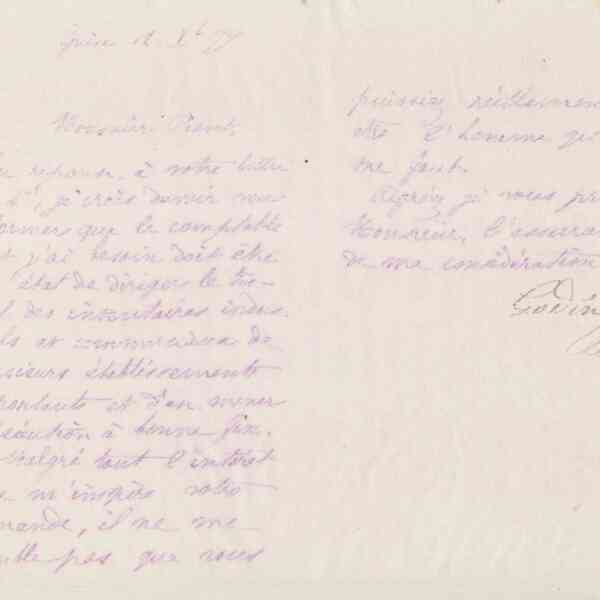 Guise 12 Xbre 77
Monsieur Piant,
reponse à votre lettre
je crois devoir vous
informer que le comptable
t j'ai besoin doit être
état de diriger le tra-
l des inventaires indus.
ls et commerciaux de
usieurs établissements
portants et d'en mener
exécution à bonne fin.
Malgré tout l'intérêt
e m'inspire votre
mande, il ne me
mble pas que vous
puissiez réellement
être l'homme qu
me faut.
Agréez je vous pri
Monsieur, l'assuran
de ma considération
Godin